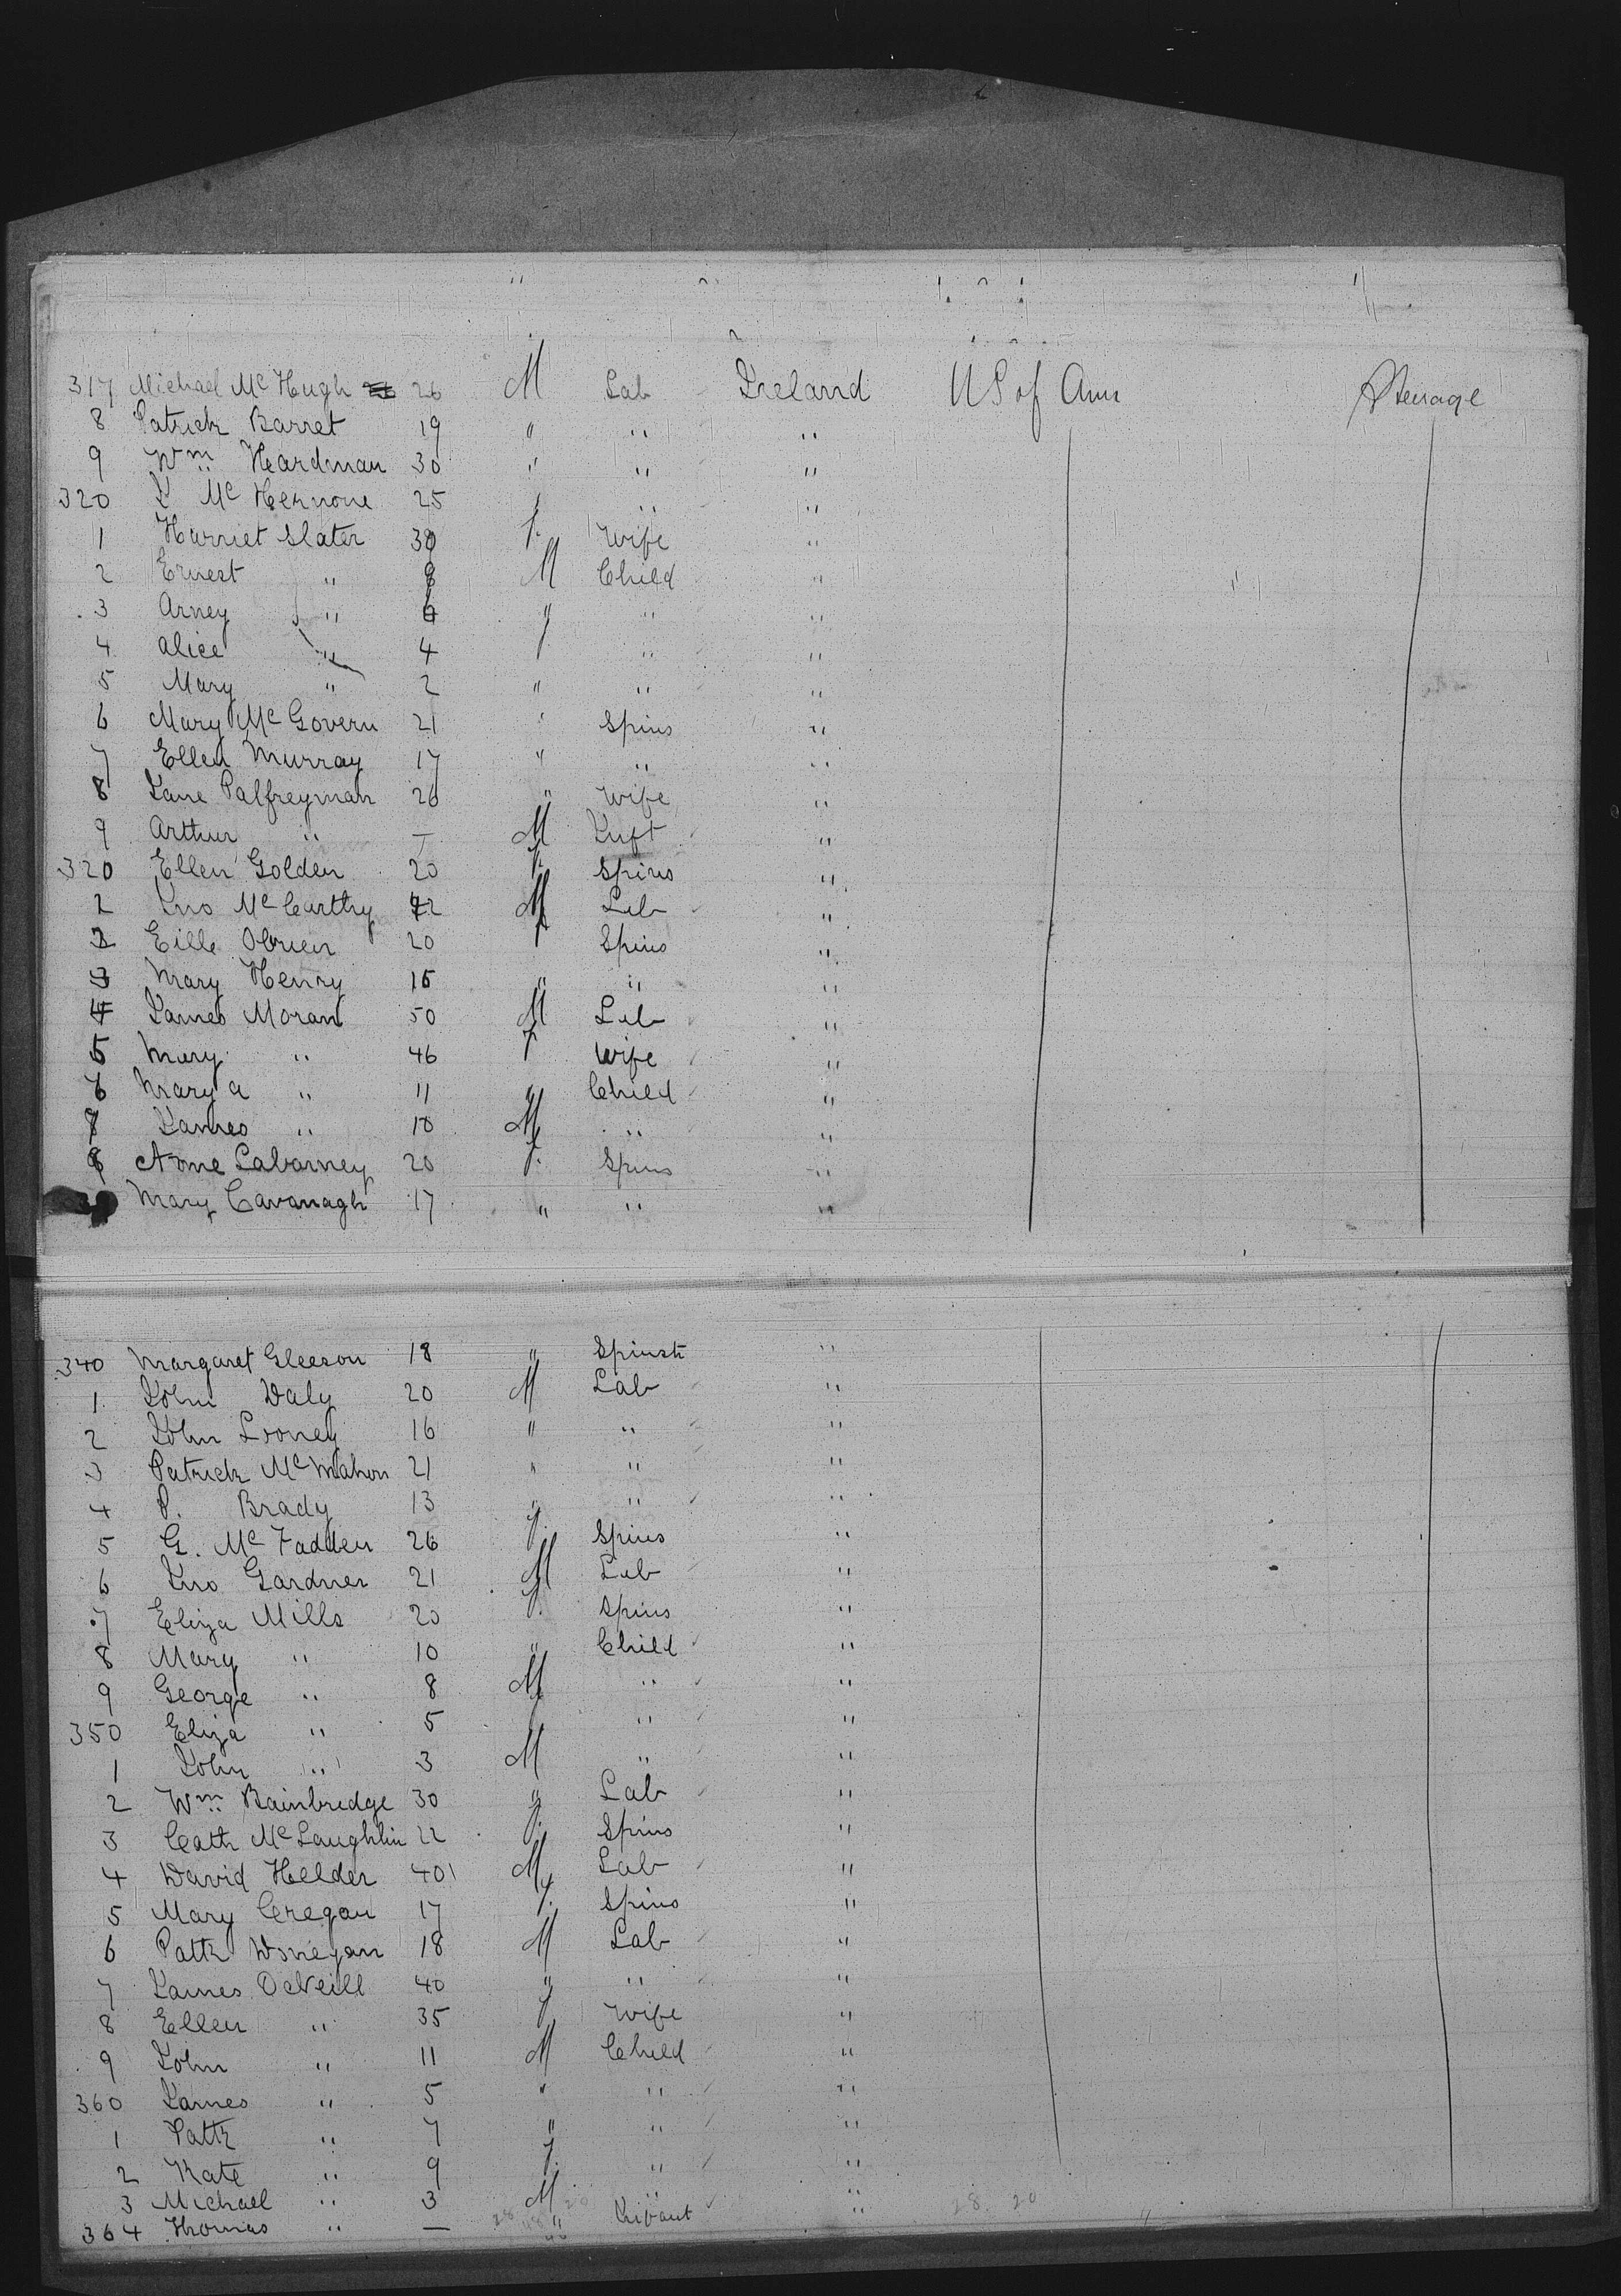 317 Michael McHugh 26 M Lab Ireland US of Amr Steerage
8 Patrick Barret 19 " " "
9 Wm Heardman 30 " " "
320 J McHernone 25 " " "
1 Harriet Slater 30 f. Wife "
2 Ernest " 8 M Child "
3 Arney " 6 " " "
4 Alice " 4 f " "
5 Mary " 2 " " "
6 Mary McGovern 21 " Spins "
7 Ellen Murray 17 " " "
8 Jane Palfreyman 26 " Wife "
9 Arthur " — M Inft "
320 Ellen Golden 20 f. Spins "
2 Jno McCarthy 22 M Lab "
2 Eille Obrien 20 f Spins "
3 Mary Henry 15 " " "
4 James Moran 50 M Lab "
5 Mary " 46 f Wife "
6 Mary a " 11 " Child "
7 James " 10 M " "
8 Anne Labarney 20 f. Spins "
Mary Cavanagh 17 " " "
340 Margaret Gleeson 18 " Spinstr "
1 John Daly 20 M Lab "
2 John Looney 16 " " "
3 Patrick McMahon 21 " " "
4 P. Brady 13 " " "
5 G. McFadden 26 f. Spins "
6 Jno Gardner 21 M Lab "
7 Eliza Mills 20 f. Spins "
8 Mary " 10 " Child "
9 George " 8 M " "
350 Eliza " 5 f " "
1 John " 3 M " "
2 Wm Bainbridge 30 " Lab "
3 Cath McLaughlin 22 f. Spins "
4 David Helder 40 M Lab "
5 Mary Cregan 17 f. Spins "
6 Patk Donegan 18 M Lab "
7 James ONeill 40 " " "
8 Ellen " 35 f Wife "
9 John " 11 M Child "
360 James " 5 " " "
1 Patk " 7 " " "
2 Kate " 9 f. " "
3 Michael " 3 M " "
364 Thomas " — " Infant " 28. 20